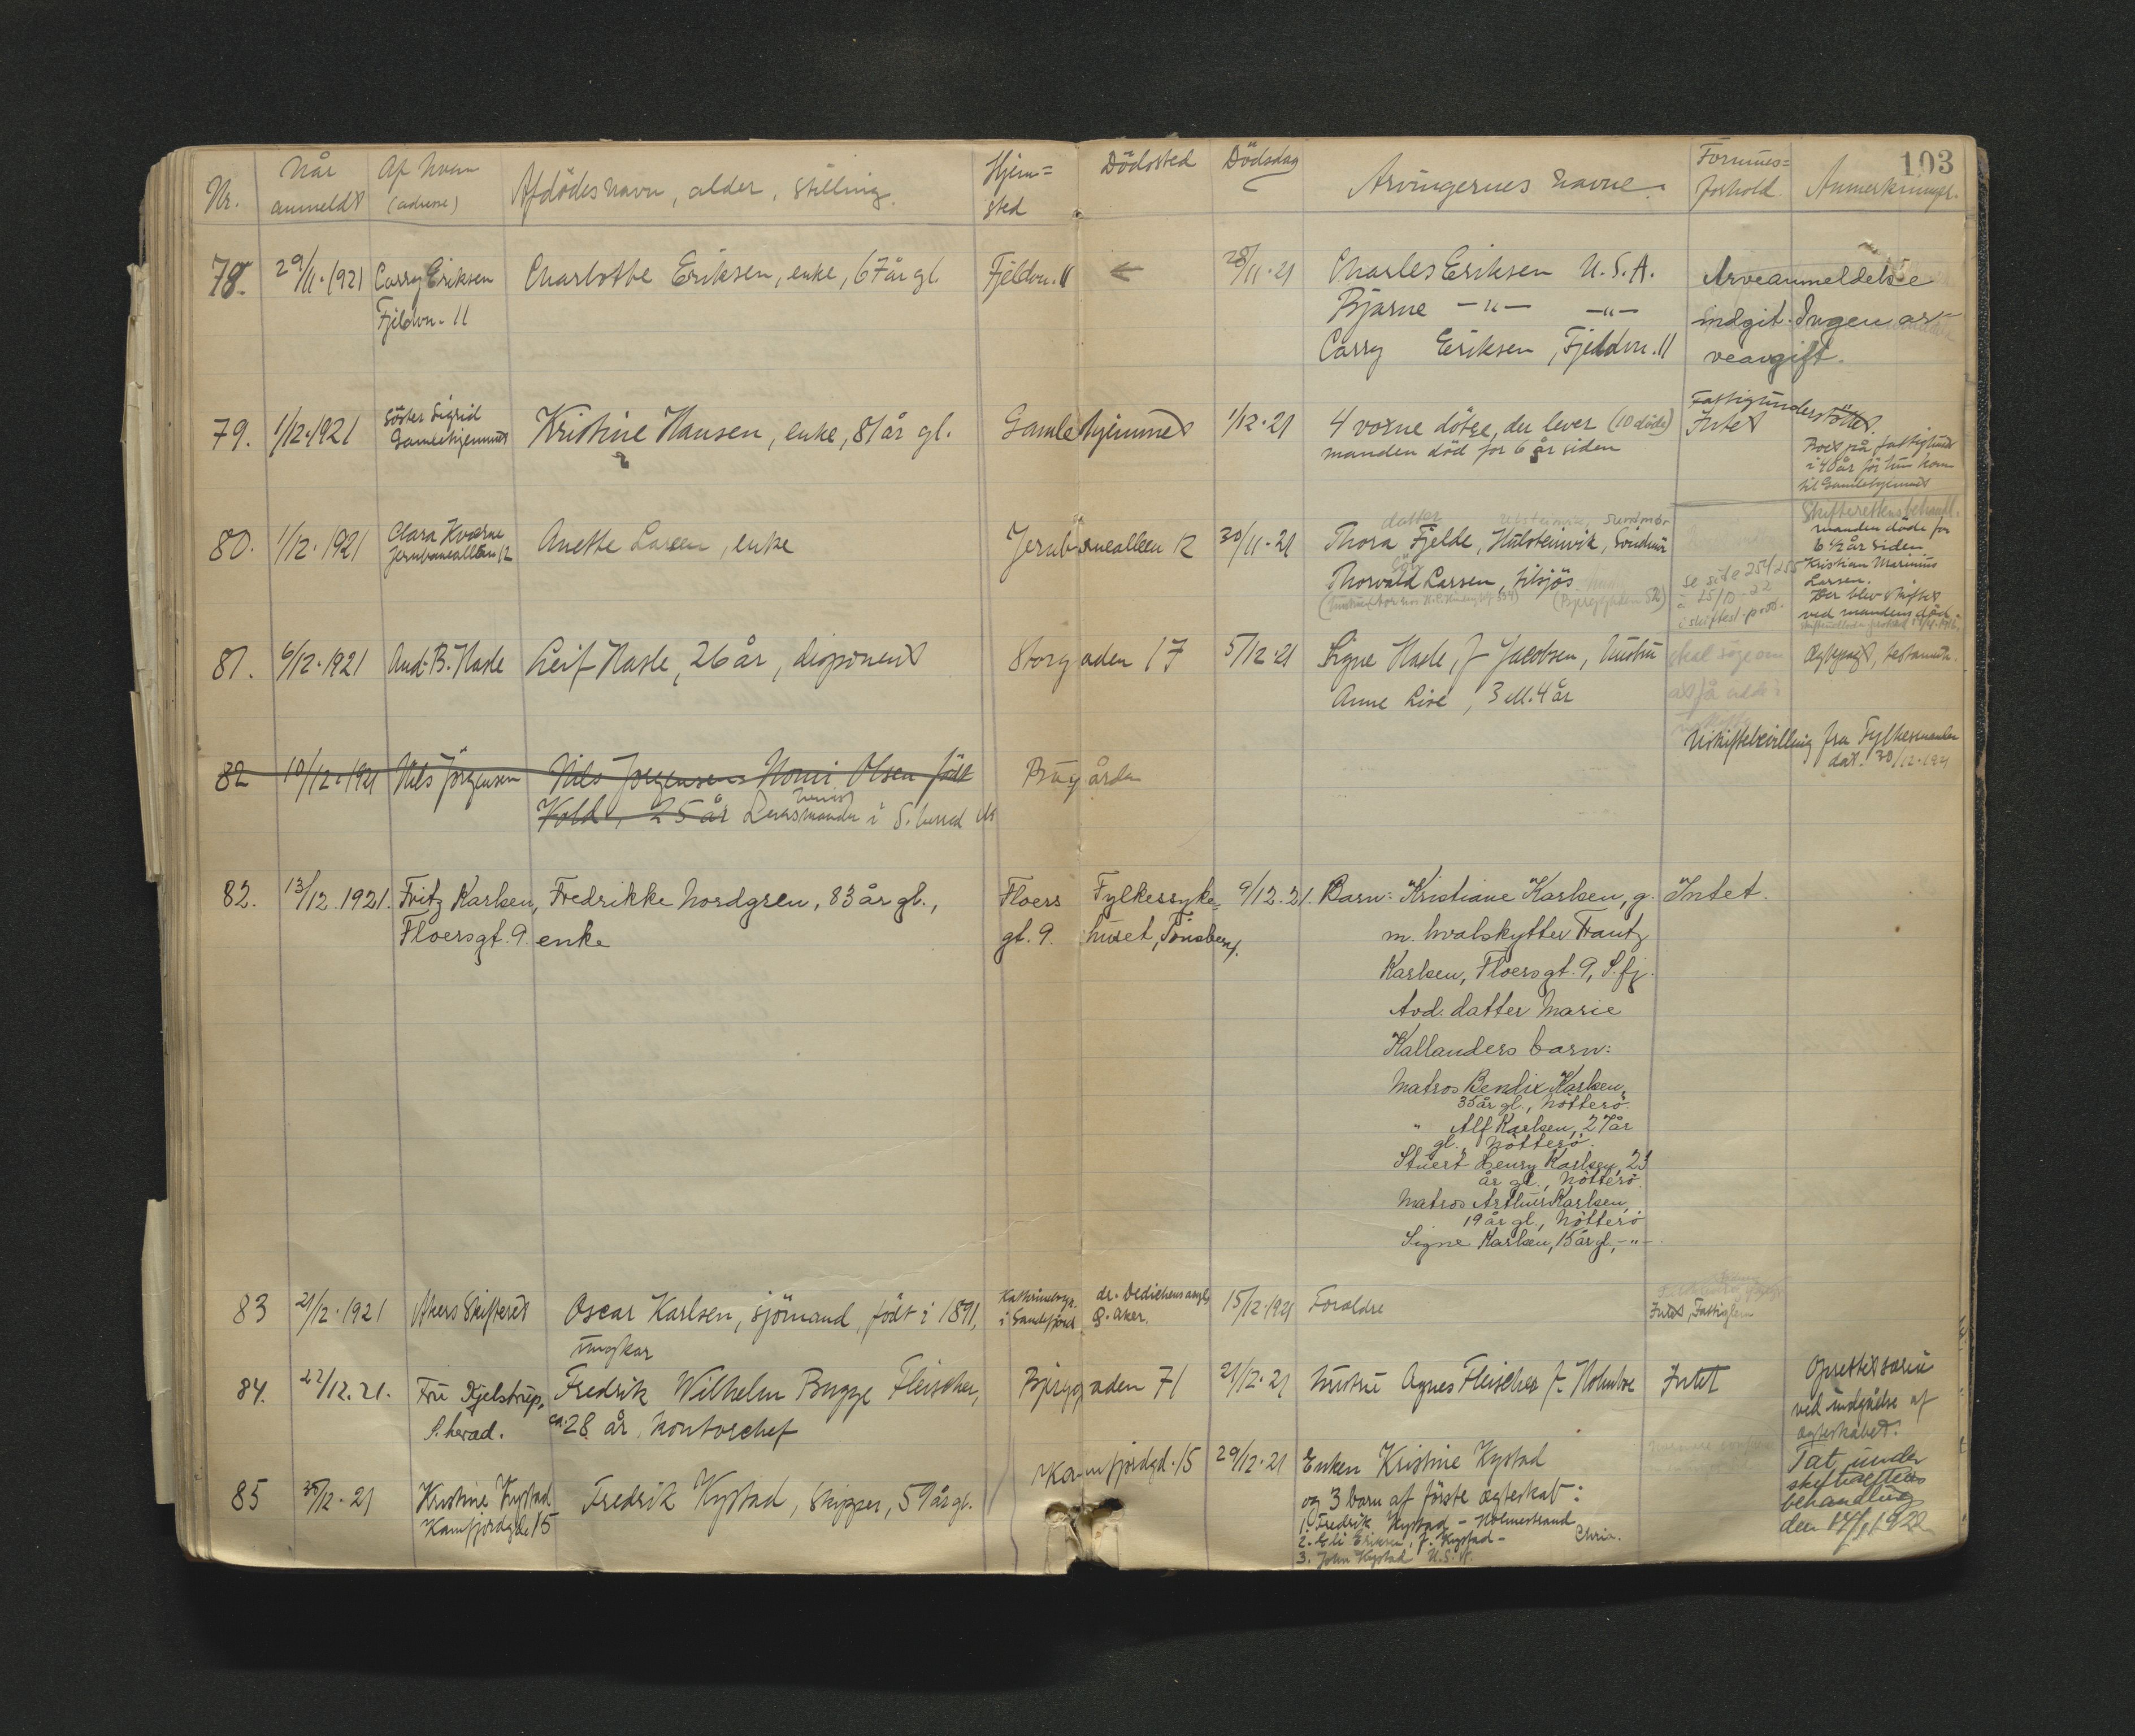 103
Nr.
Når anmeldt
Af hvem (adresse)
Afdödes navn, alder, stilling.
Hjem=
sted
Dödssted
Dödsdag
Arvingernes navne.
Formues=
forhold.
Anmerkninger.
78. 29/11.1921 Carry Eriksen Charlotte Eriksen, enke, 67 år gl. Fjeldvn. 11 28/11.21 Charles Eriksen U.S.A. Arveanmeldelse
Fjeldvn. 11 Bjarne -"- -"- indgit. Ingen ar-
Carry Eriksen, Fjeldvn. 11 veavgift.
79. 1/12.1921 Söster Sigrid Kristine Hansen, enke, 81 år gl. Gamlehjemmet 1/12.21 4 voxne dötre, der lever (10 döde) Intet Fattigunderstöttet.
Gamlehjemmet manden död for 6 år siden
Boet på fattighuset
i 40 år för hun kom
til Gamlehjemmet
80. 1/12.1921 Clara Kværne Anette Larsen, enke Jernbanealleen 12 30/11.21 Thora Fjelde, Hulsteinvik, Söndmör
Jernbanealleen 12 datter
Thorvald Larsen, tilsjös
se side 254/255
i skiftesl. prot.
Skifterettens behandl.
manden döde for
6 1/2 år siden
Kristian Marinius
Larsen.
Der blev skiftet
ved mandens död.
81. 6/12.1921 And. B. Hasle Leif Hasle, 26 år, disponent Storgaden 17 5/12.21 Signe Hasle, f. Jacobsen, hustru skal söge om Ægtepagt, testament.
Anne Lise, 3 ell. 4 år
Uskiftebevilling fra Fylkesmanden
dat. 30/12.1921
82 10/12.1921 Nils Jörgensen Nils Jorgensens Olsen födt Bugården
Kold, 25 år Lensmanden i S. herred
82. 13/12.1921. Fritz Karlsen, Fredrikke Nordgren, 83 år gl., Floers Fylkessyke= 9/12.21. Barn: Kristiane Karlsen, g. Intet.
Floersgt. 9. enke gt. 9. huset, Tönsberg. m. hvalskytter Frantz
Karlsen, Floersgt. 9, S.fj.
Avd. datter Marie
Kallanders barn:
Matros Bendix Karlsen,
35 år gl., Nötterö.
" Alf Karlsen, 27 år
gl., Nötterö.
Stuert Henry Karlsen, 23
år gl., Nötterö.
Matros Arthur Karlsen,
19 år gl., Nötterö
Signe Karlsen, 15 år gl., -"-
83 21/12.1921 Akers Skifteret Oscar Karlsen, sjömand, födt i 1891, i Sandefjord dr. Dedichens asyl, Ö. Aker. 15/12.1921 Forældre Intet, Fattiglem
ungkar
84. 22/12.21. Fru Kjelstrup, Fredrik Wilhelm Bugge Fleischer, Bjerggaden 71 21/12.21 Hustru Agnes Fleischer f. Holmboe Intet
S. herad. ca. 28 år, kontorchef
Oprettet særeie
ved indgåelse af
ægteskabet.
85 30/12.21 Kristine Kystad Fredrik Kystad, Skipper, 59 år gl. Kamfjordgd. 15 29/12.21 Enken Kristine Kystad
Kamfjordgde 15 og 3 barn af förste ægteskab:
1. Fredrik Kystad - Holmestrand
2. Eli Eriksen, f. Kystad - Chria.
3. John Kystad U.S.A.
Tat under
skifterettens
behandling
den 14/1 1922